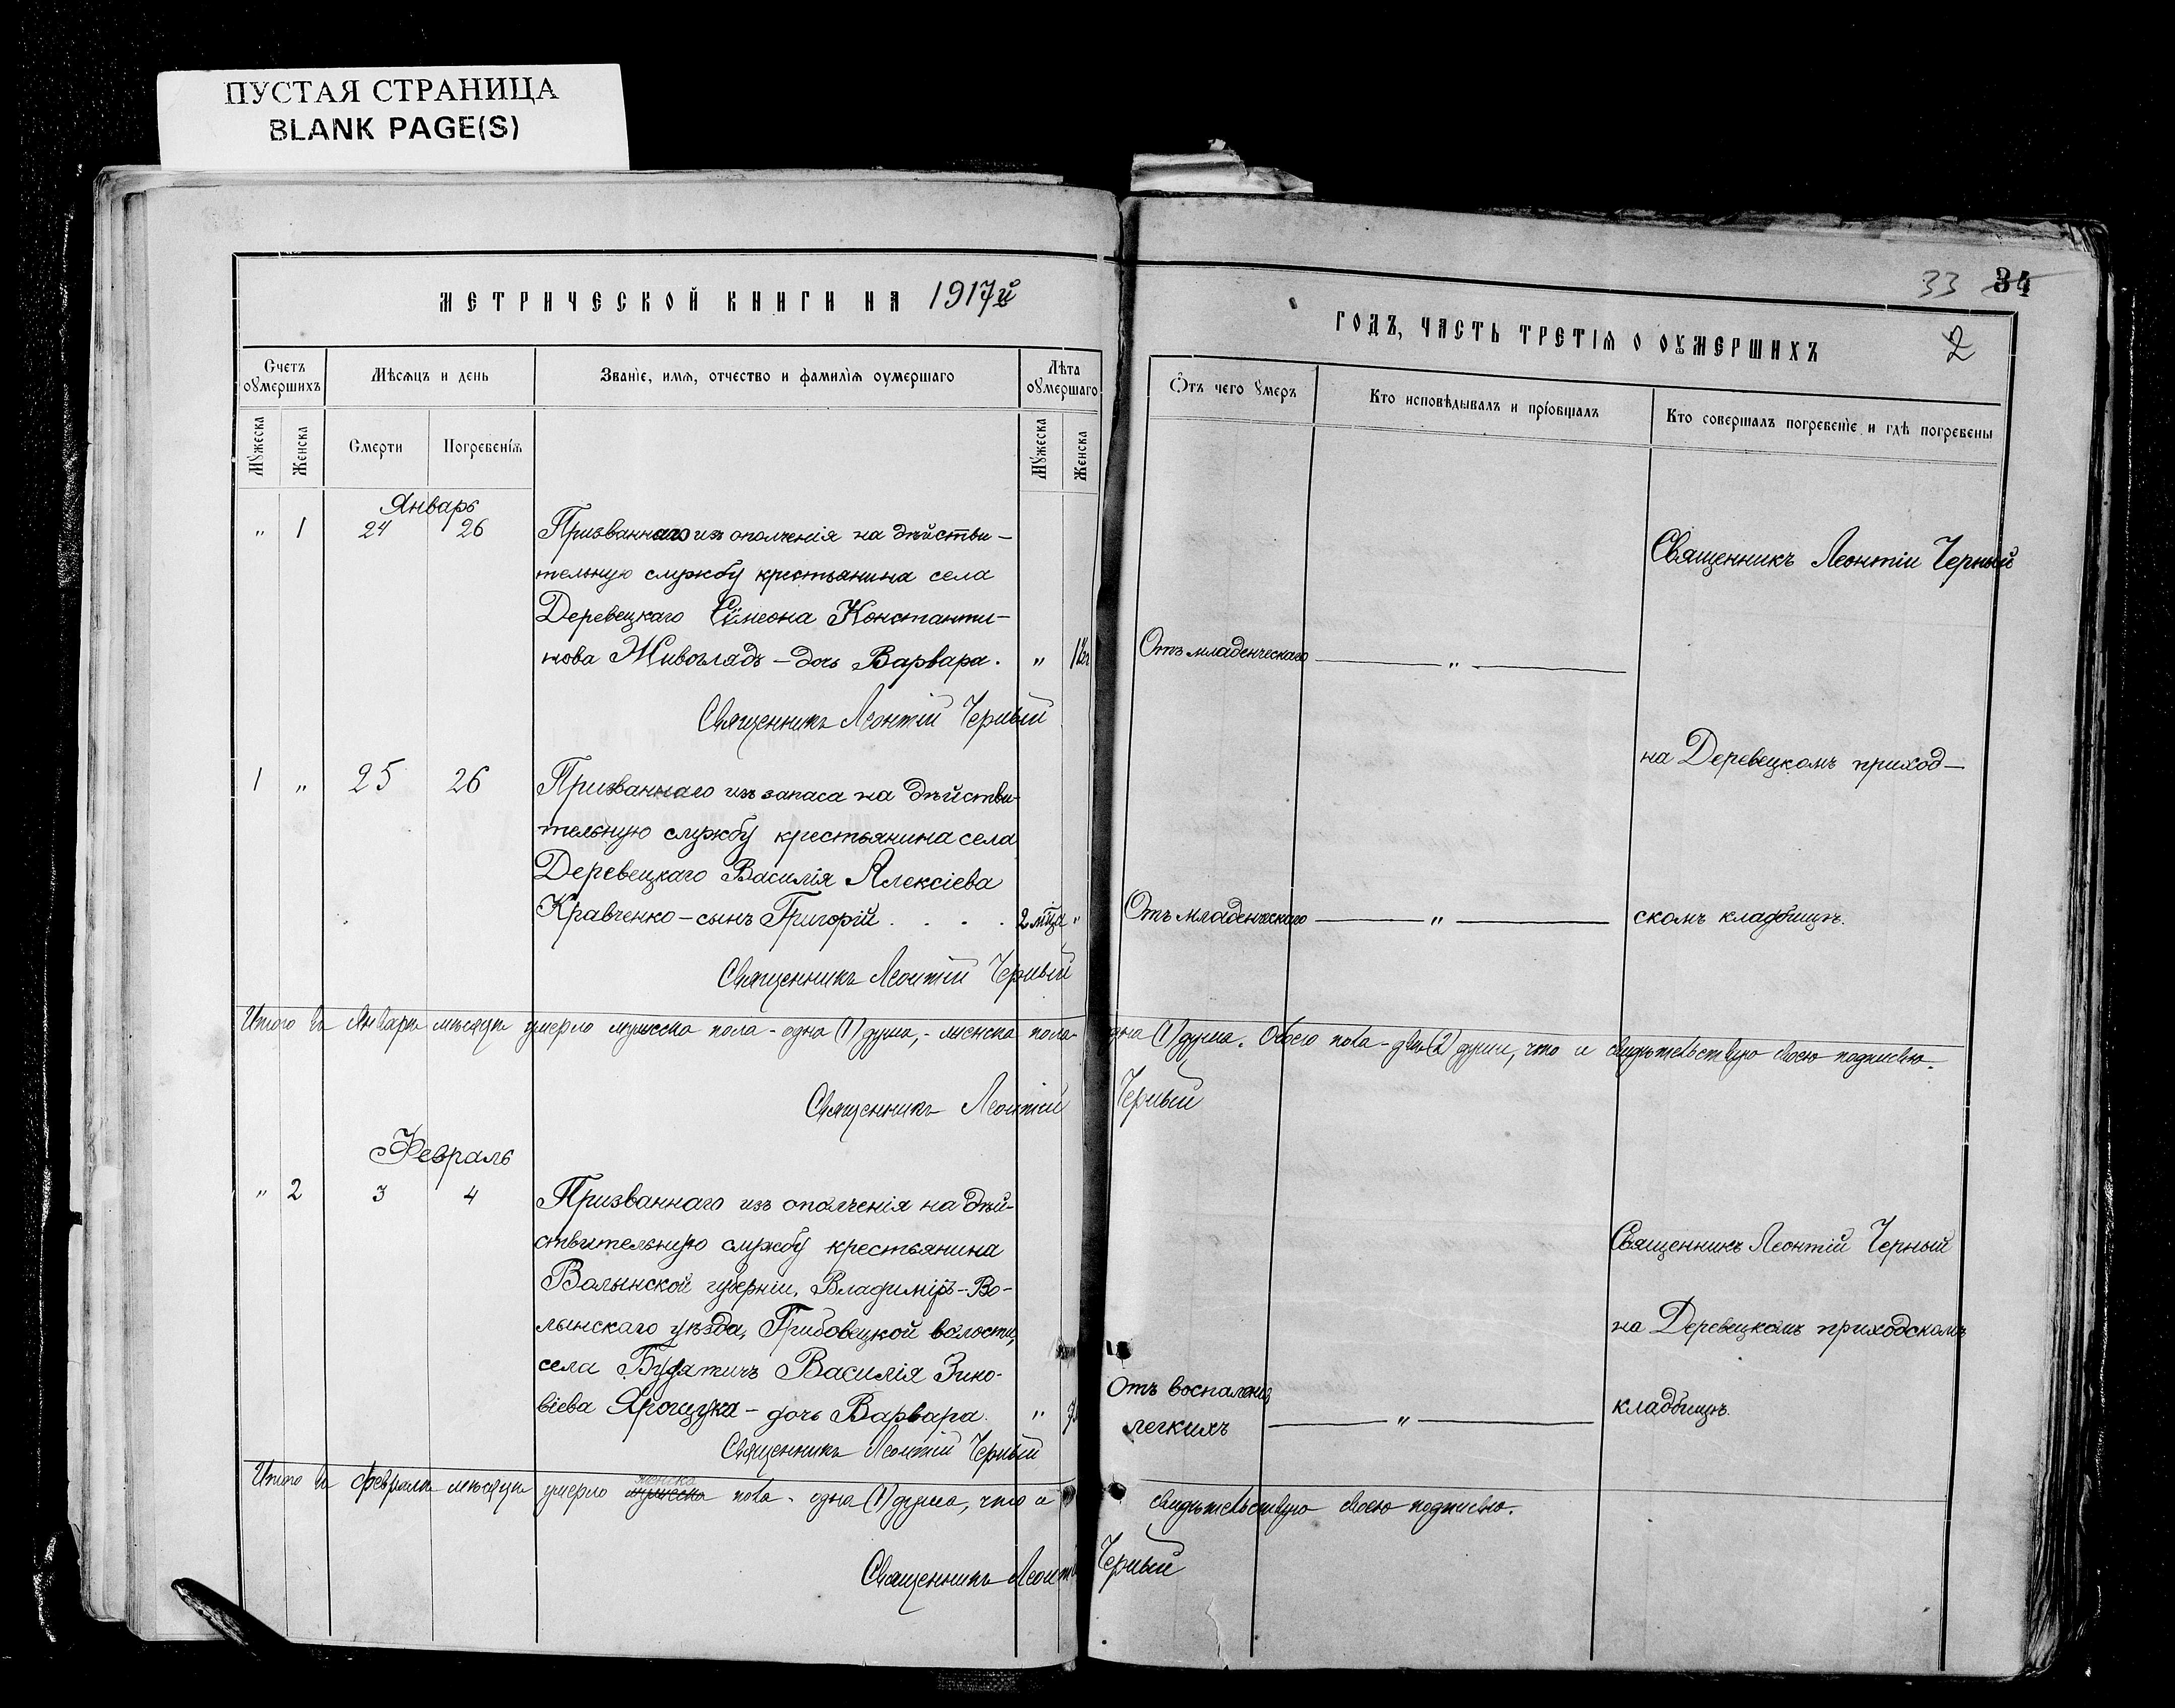 ПУСТАЯ СТРАНИЦА
BLANK PAGE(S)
МЕТРИЧЕСКОЙ КНИГИ НА 1917й
Счетъ оумершихъ
Мѣсяцъ и день
Званіе, имя, отчество и фамилія оумершаго
Лѣта оумершаго
Мужеска
Женска
Смерти
Погребенія
Мужеска
Женска
Январь
" 1 24 26 Призваннаго изъ ополченія на дѣйстви-
тельную службу крестьянина села
Деревецкаго Сѵмеона Константи-
нова Живоглядъ - дочь Варвара. "
Священникъ Леонтій Черный
1 " 25 26 Призваннаго изъ запаса на дѣйстви-
тельную службу крестьянина села
Деревецкаго Василія Алексіева
Кравченко - сынъ Григорій . . . . 2 мѣца "
Священникъ Леонтій Черный
Итого въ Январѣ мѣсяцѣ умерло мужеска пола - одна (1) душа, - женска пола -
Священникъ Леонтій
Февраль
" 2 3 4 Призваннаго изъ ополченія на дѣй-
ствительную службу крестьянина
Волынской губерніи, Владиміръ-Во-
лынскаго уѣзда, Грибовецкой волости,
села Будятичъ Василія Зино-
віева Ярощука - дочь Варвара. "
Священникъ Леонтій Черный
женска
Итого въ Февралѣ мѣсяцѣ умерло мужеска пола - одна (1) душа, что и
Священникъ Леонтій
33 34
ГОДЪ, ЧАСТЬ ТРЕТІЯ О ОУМЕРШИХЪ
2
Ѿтъ чего умеръ
Кто исповѣдывалъ и пріобщалъ
Кто совершалъ погребеніе и гдѣ погребены
Священникъ Леонтій Черный
Отъ младенческаго "
на Деревецкомъ приход-
Отъ младенческаго " скомъ кладбищѣ.
одна (1) душа. Обоего пола - двѣ (2) души, что и свидѣтельствую своею подписью.
Черный
Священникъ Леонтій Черный
на Деревецкомъ приходскомъ
Отъ воспаленія
легкихъ " кладбищѣ.
свидѣтельствую своею подписью.
Черный